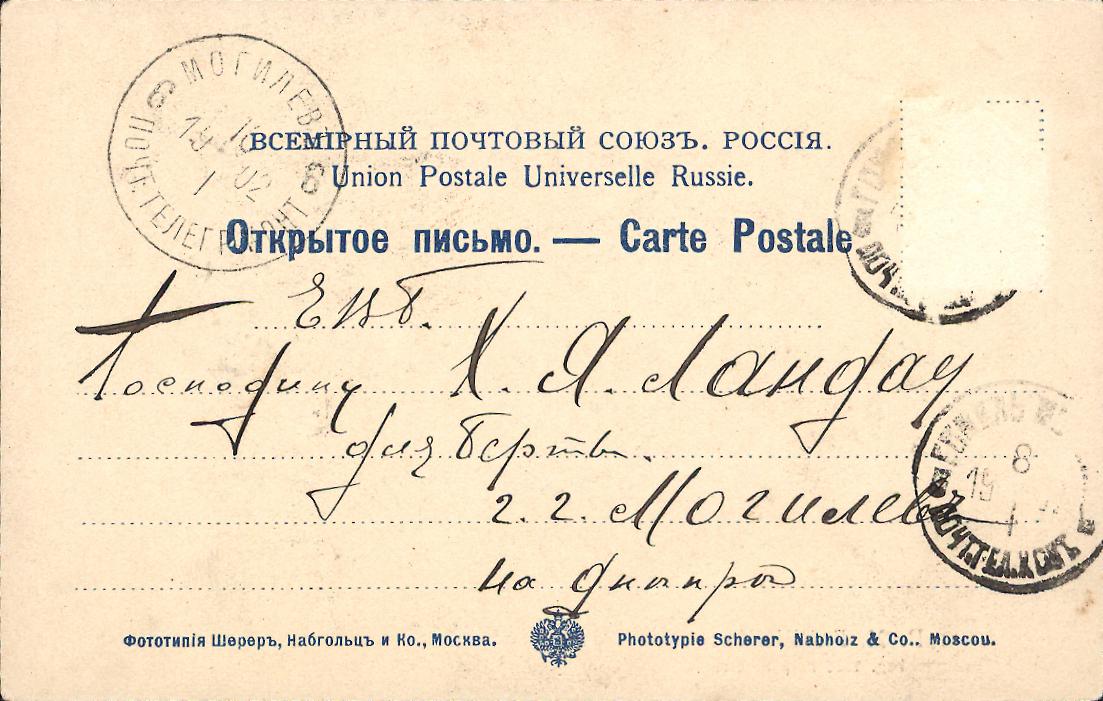 МОГИЛЕВ
6 6
10
19 02
I
ПОЧ. ТЕЛЕГР. КОНТ
ВСЕМІРНЫЙ ПОЧТОВЫЙ СОЮЗЪ. РОССІЯ.
Union Postale Universelle Russie.
Открытое письмо. — Carte Postale
Евб.
Господину Х. Я. Ландау
для Берты.
г. г. Могилевъ
на Днѣпрѣ
ГОМЕЛЬ
8
19
I
ПОЧТ.ТЕЛ.КОНТ.
Фототипія Шереръ, Набгольцъ и Ко., Москва.
Phototypie Scherer, Nabholz & Co.. Moscou.